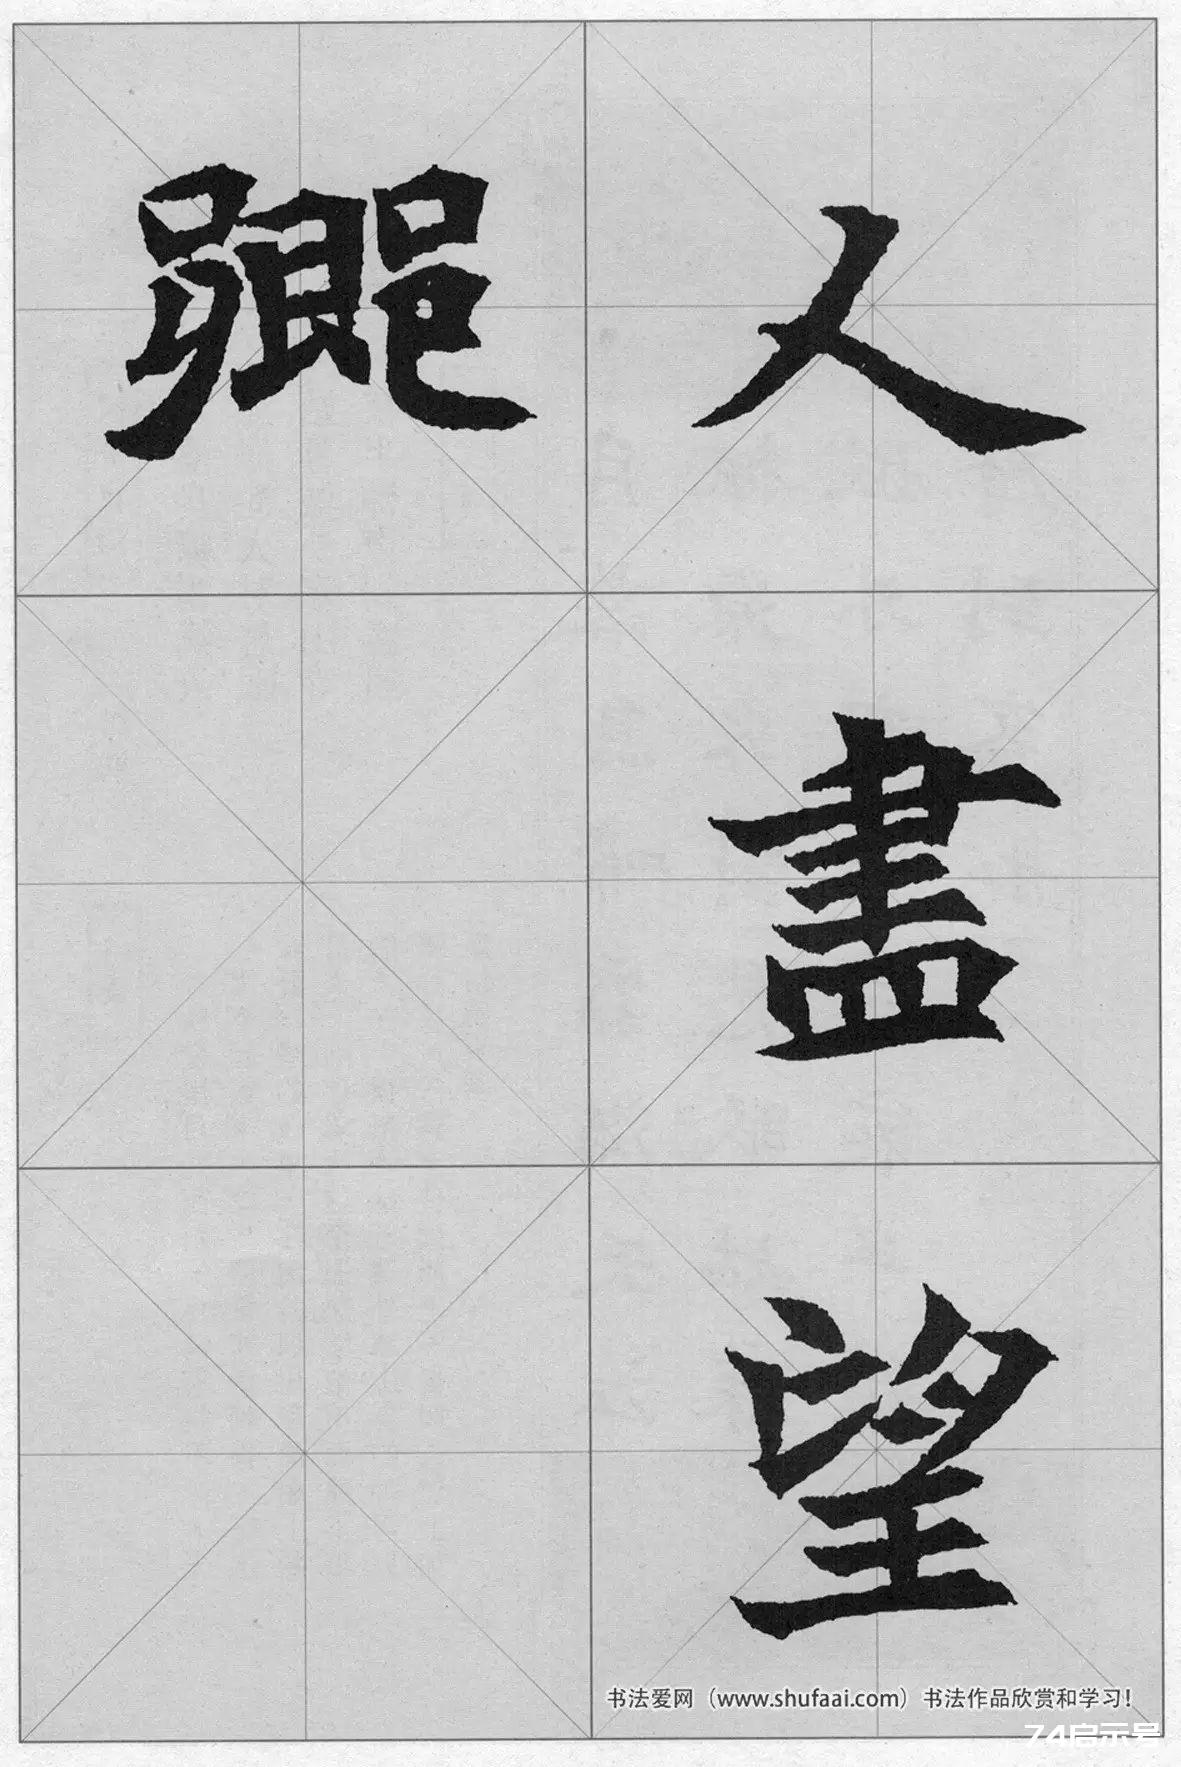 人盡望
鄉
书法爱网（www.shufaai.com）书法作品欣赏和学习！
74启示号